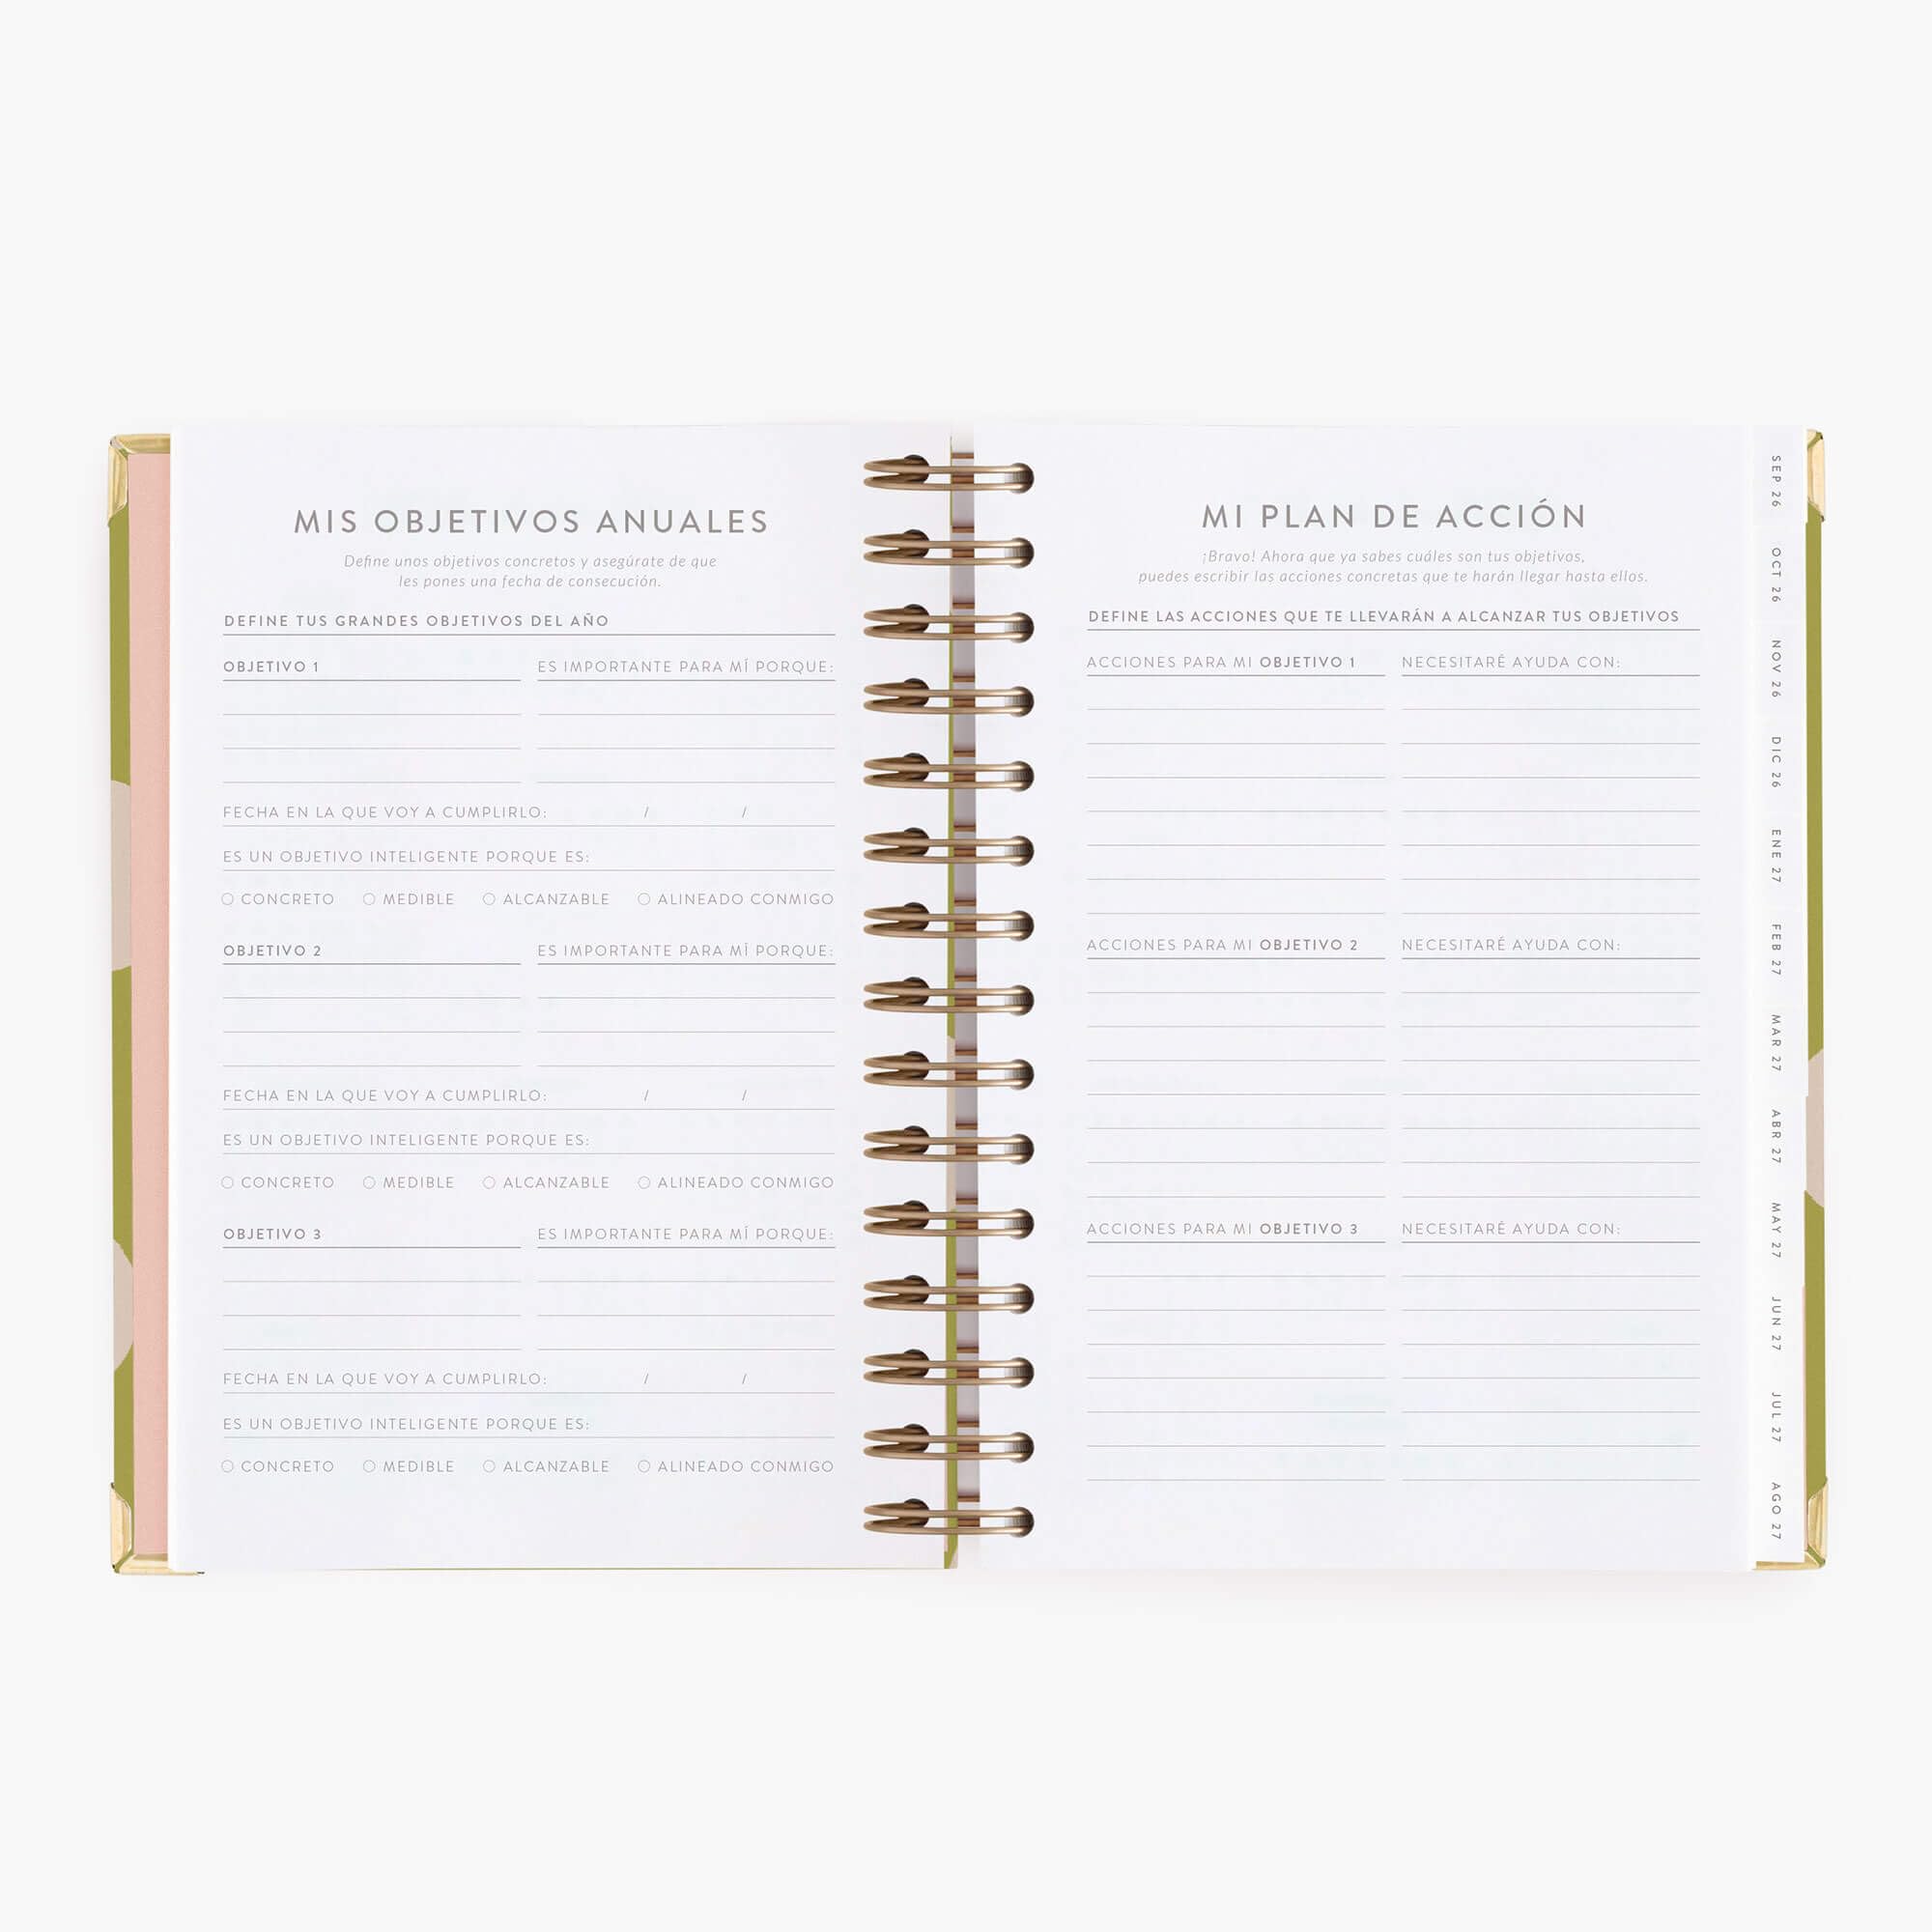 MIS OBJETIVOS ANUALES
Define unos objetivos concretos y asegúrate de que
les pones una fecha de consecución.
DEFINE TUS GRANDES OBJETIVOS DEL AÑO
OBJETIVO 1 ES IMPORTANTE PARA MÍ PORQUE:
FECHA EN LA QUE VOY A CUMPLIRLO: / /
ES UN OBJETIVO INTELIGENTE PORQUE ES:
CONCRETO MEDIBLE ALCANZABLE ALINEADO CONMIGO
OBJETIVO 2 ES IMPORTANTE PARA MÍ PORQUE:
FECHA EN LA QUE VOY A CUMPLIRLO: / /
ES UN OBJETIVO INTELIGENTE PORQUE ES:
CONCRETO MEDIBLE ALCANZABLE ALINEADO CONMIGO
OBJETIVO 3 ES IMPORTANTE PARA MÍ PORQUE:
FECHA EN LA QUE VOY A CUMPLIRLO: / /
ES UN OBJETIVO INTELIGENTE PORQUE ES:
CONCRETO MEDIBLE ALCANZABLE ALINEADO CONMIGO
MI PLAN DE ACCIÓN
¡Bravo! Ahora que ya sabes cuáles son tus objetivos,
puedes escribir las acciones concretas que te harán llegar hasta ellos.
DEFINE LAS ACCIONES QUE TE LLEVARÁN A ALCANZAR TUS OBJETIVOS
ACCIONES PARA MI OBJETIVO 1 NECESITARÉ AYUDA CON:
ACCIONES PARA MI OBJETIVO 2 NECESITARÉ AYUDA CON:
ACCIONES PARA MI OBJETIVO 3 NECESITARÉ AYUDA CON:
SEP 26
OCT 26
NOV 26
DIC 26
ENE 27
FEB 27
MAR 27
ABR 27
MAY 27
JUN 27
JUL 27
AGO 27